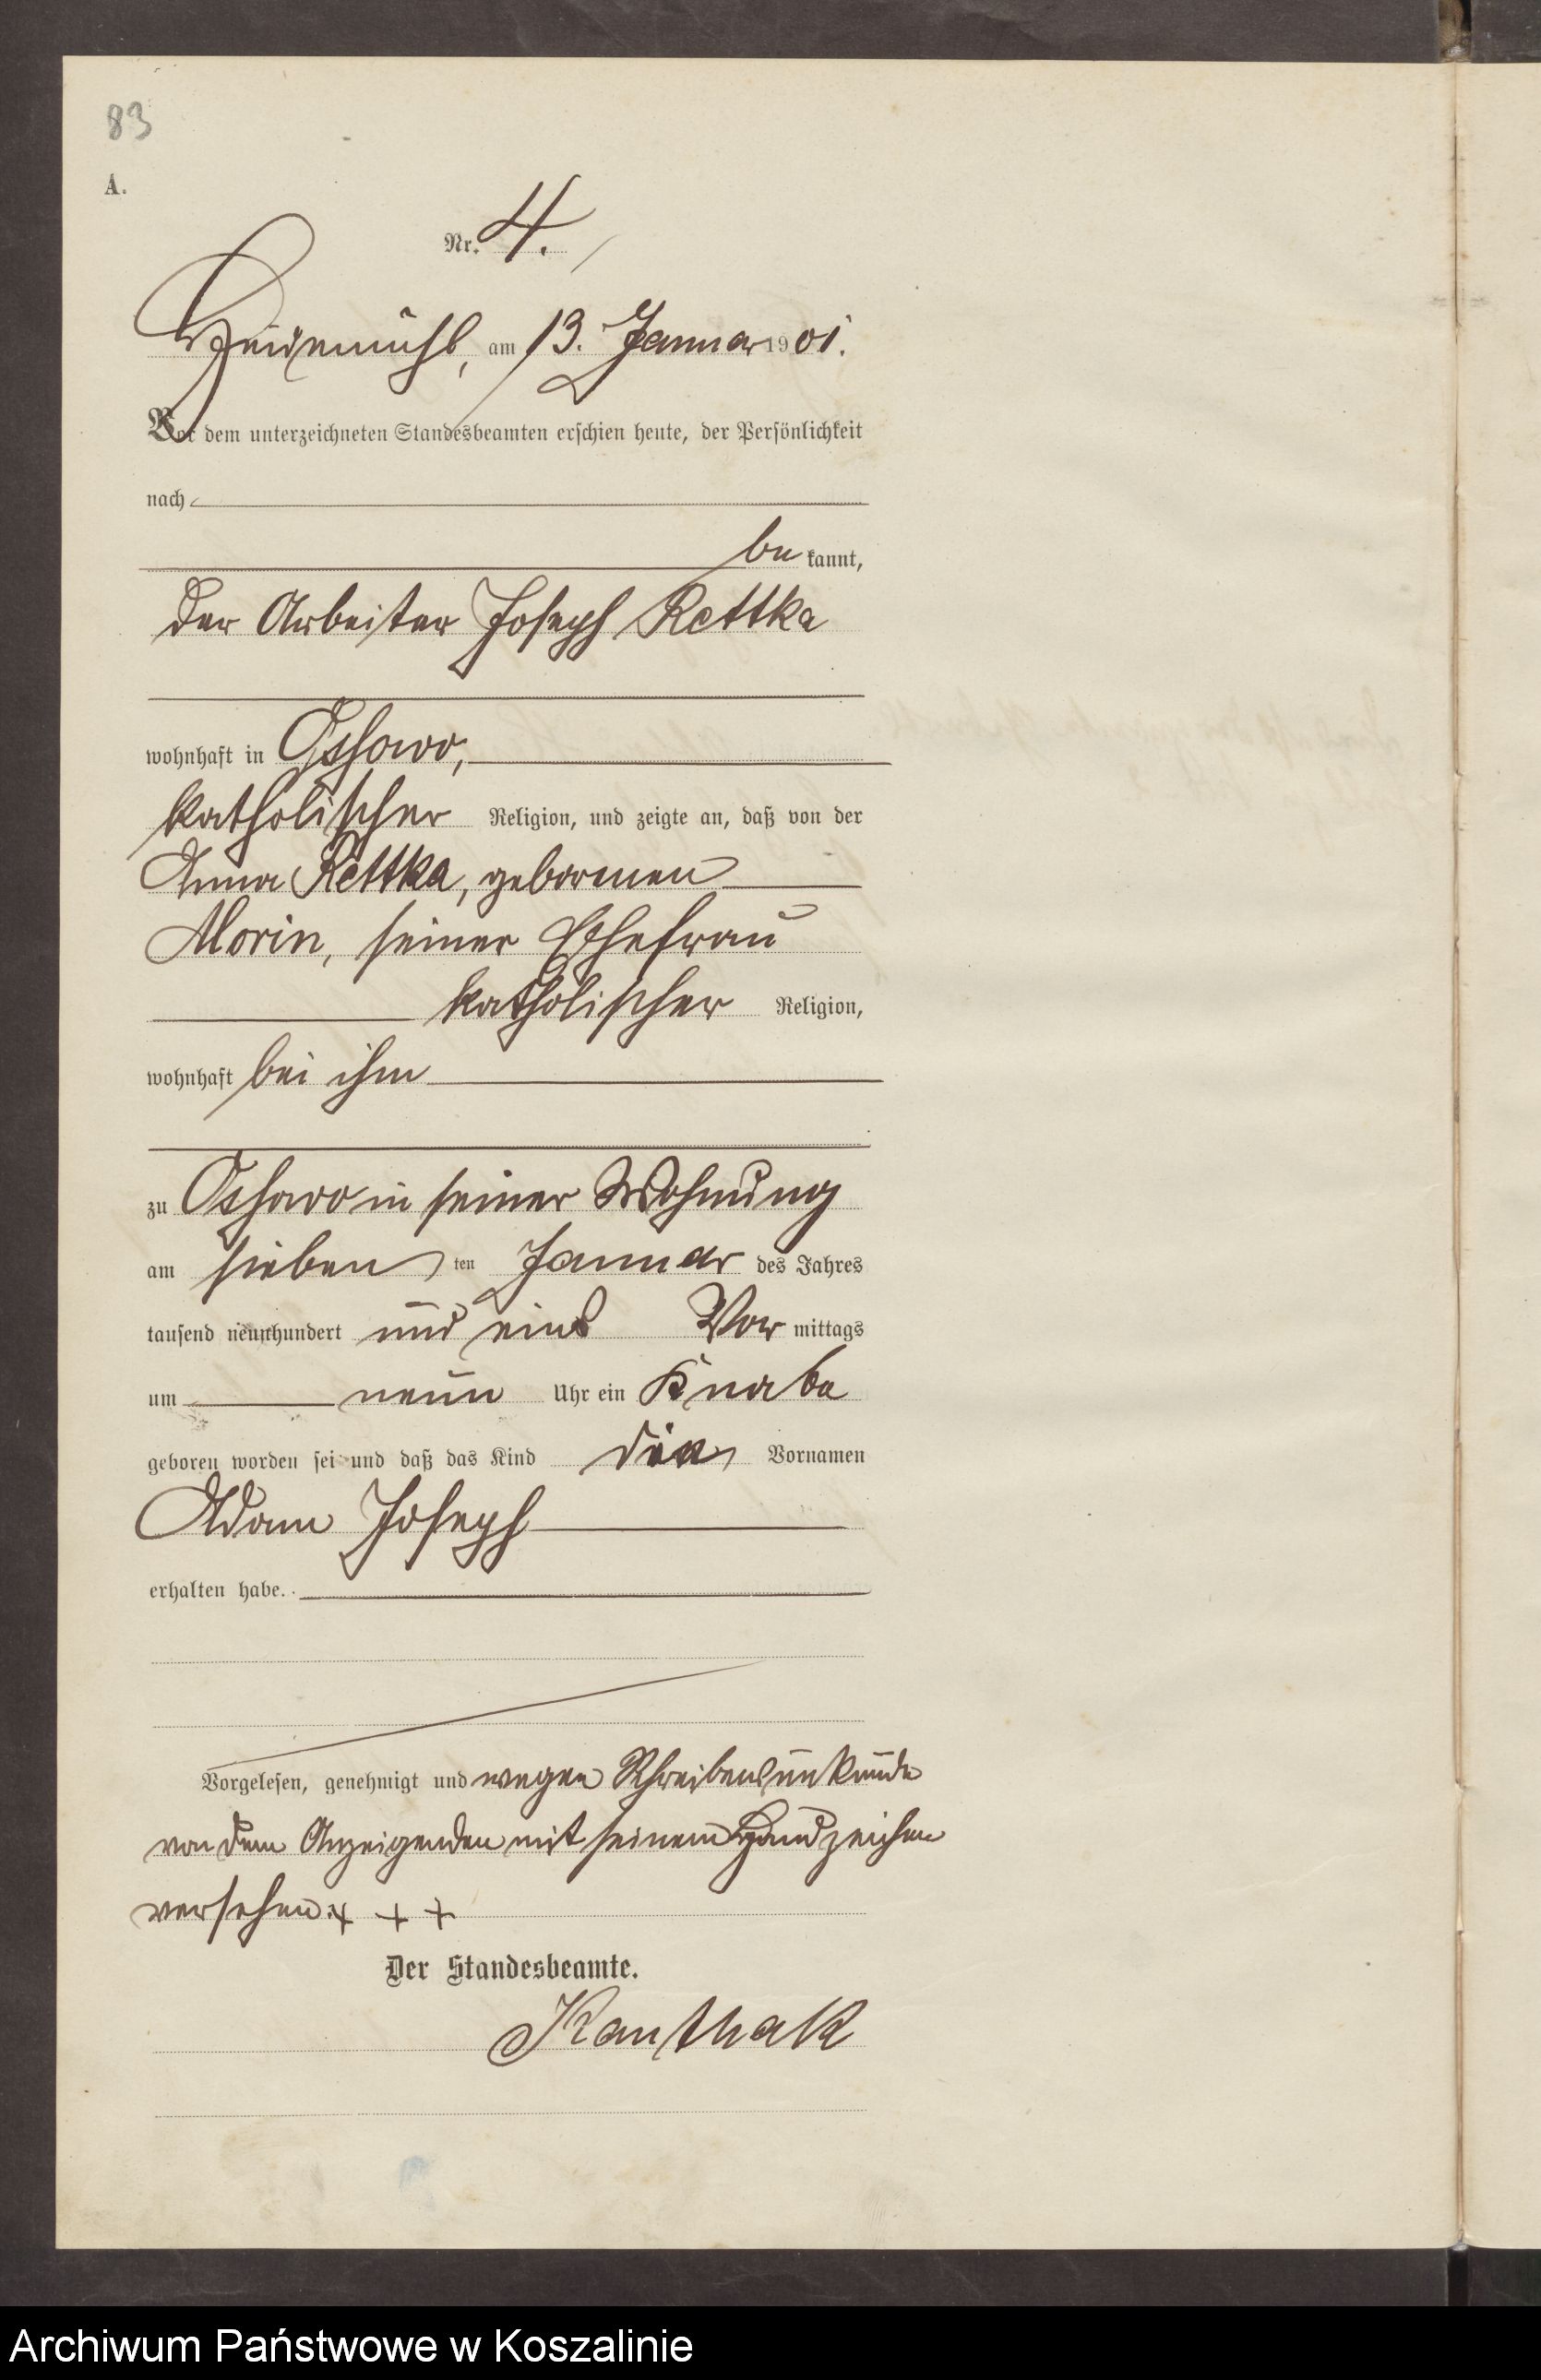 83
A.
Nr. 4.
Heidemühl, am 13. Januar 1901.
Vor dem unterzeichneten Standesbeamten erschien heute, der Persönlichkeit
nach
be kannt,
der Arbeiter Joseph Rettka
wohnhaft in Ossowo,
katholischer Religion, und zeigte an, daß von der
Anna Rettka, geborenen
Morin, seiner Ehefrau
katholischer Religion,
wohnhaft bei ihm
zu Ossowo in seiner Wohnung
am sieben ten Januar des Jahres
tausend neunhundert und eins Vor mittags
um neun Uhr ein Knabe
geboren worden sei und daß das Kind die Vornamen
Adam Joseph
erhalten habe.
Vorgelesen, genehmigt und wegen Schreibensunkunde
von dem Anzeigenden mit seinem Handzeichen
versehen. + + +
Der Standesbeamte.
Kanthak
Archiwum Państwowe w Koszalinie